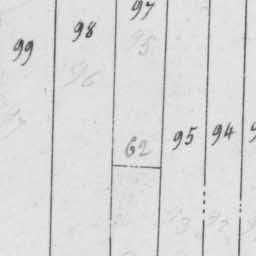 97
98
99
95
96
62
95 94